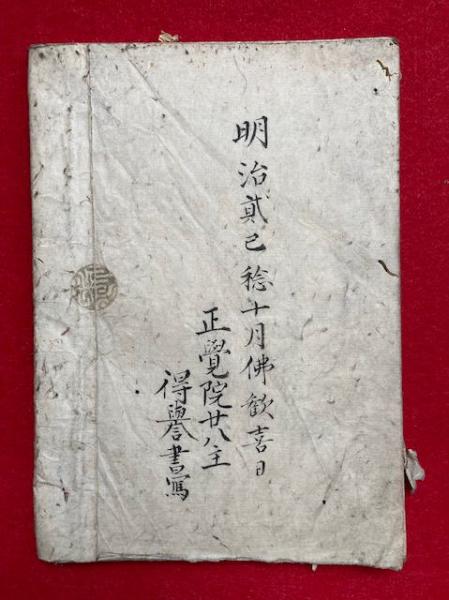 明治貳己稔十月佛歓喜日
正覺院廿八主
得譽書寫